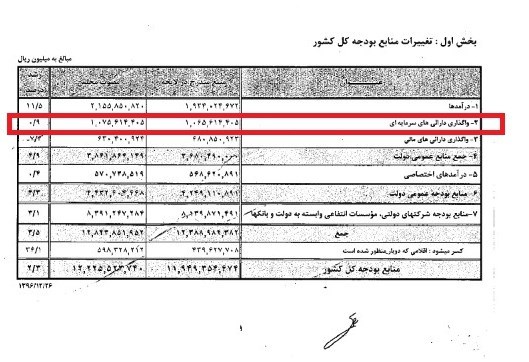 بخش اول : تغییرات منابع بودجه کل کشور
مبالغ به میلیون ریال
رشد
۱- درآمدها ۱,۹۳۴,۰۲۴,۶۷۲ ۲,۱۵۵,۸۵۰,۸۲۰ ۱۱/۵
۲- واگذاری دارائی های سرمایه ای ۱,۰۶۵,۶۱۴,۴۰۵ ۱,۰۷۵,۶۱۴,۴۰۵ ۰/۹
۳- واگذاری دارائی های مالی ۶۸۰,۸۵۰,۹۲۳ ۶۳۰,۴۰۰,۹۲۴ -۷/۳
۴- جمع منابع عمومی دولت ۳,۸۶۱,۸۶۶,۱۴۹ ۴/۹
۵- درآمدهای اختصاصی ۵۶۸,۶۲۰,۸۹۱ ۵۷۰,۷۳۸,۵۱۹ ۰/۴
۶- منابع بودجه عمومی دولت ۴,۲۴۹,۱۱۰,۸۹۱ ۴,۴۳۲,۶۰۴,۶۶۸ ۴/۳
۷-منابع بودجه شرکتهای دولتی، مؤسسات انتفاعی وابسته به دولت و بانکها ۸,۱۳۹,۸۷۱,۴۹۱ ۸,۳۹۱,۲۴۷,۲۸۴ ۳/۱
جمع ۱۲,۳۸۸,۹۸۲,۳۸۲ ۱۲,۸۲۳,۸۵۱,۹۵۲ ۳/۵
کسر میشود : اقلامی که دوبار منظور شده ۴۳۹,۶۲۷,۷۰۸ ۵۹۸,۳۲۸,۲۱۲ ۳۶/۱
منابع بودجه کل کشور ۱۱,۹۴۹,۳۵۴,۶۷۴ ۱۲,۲۲۵,۵۲۳,۷۴۰ ۲/۳
۱۳۹۶/۱۲/۲۶
۱